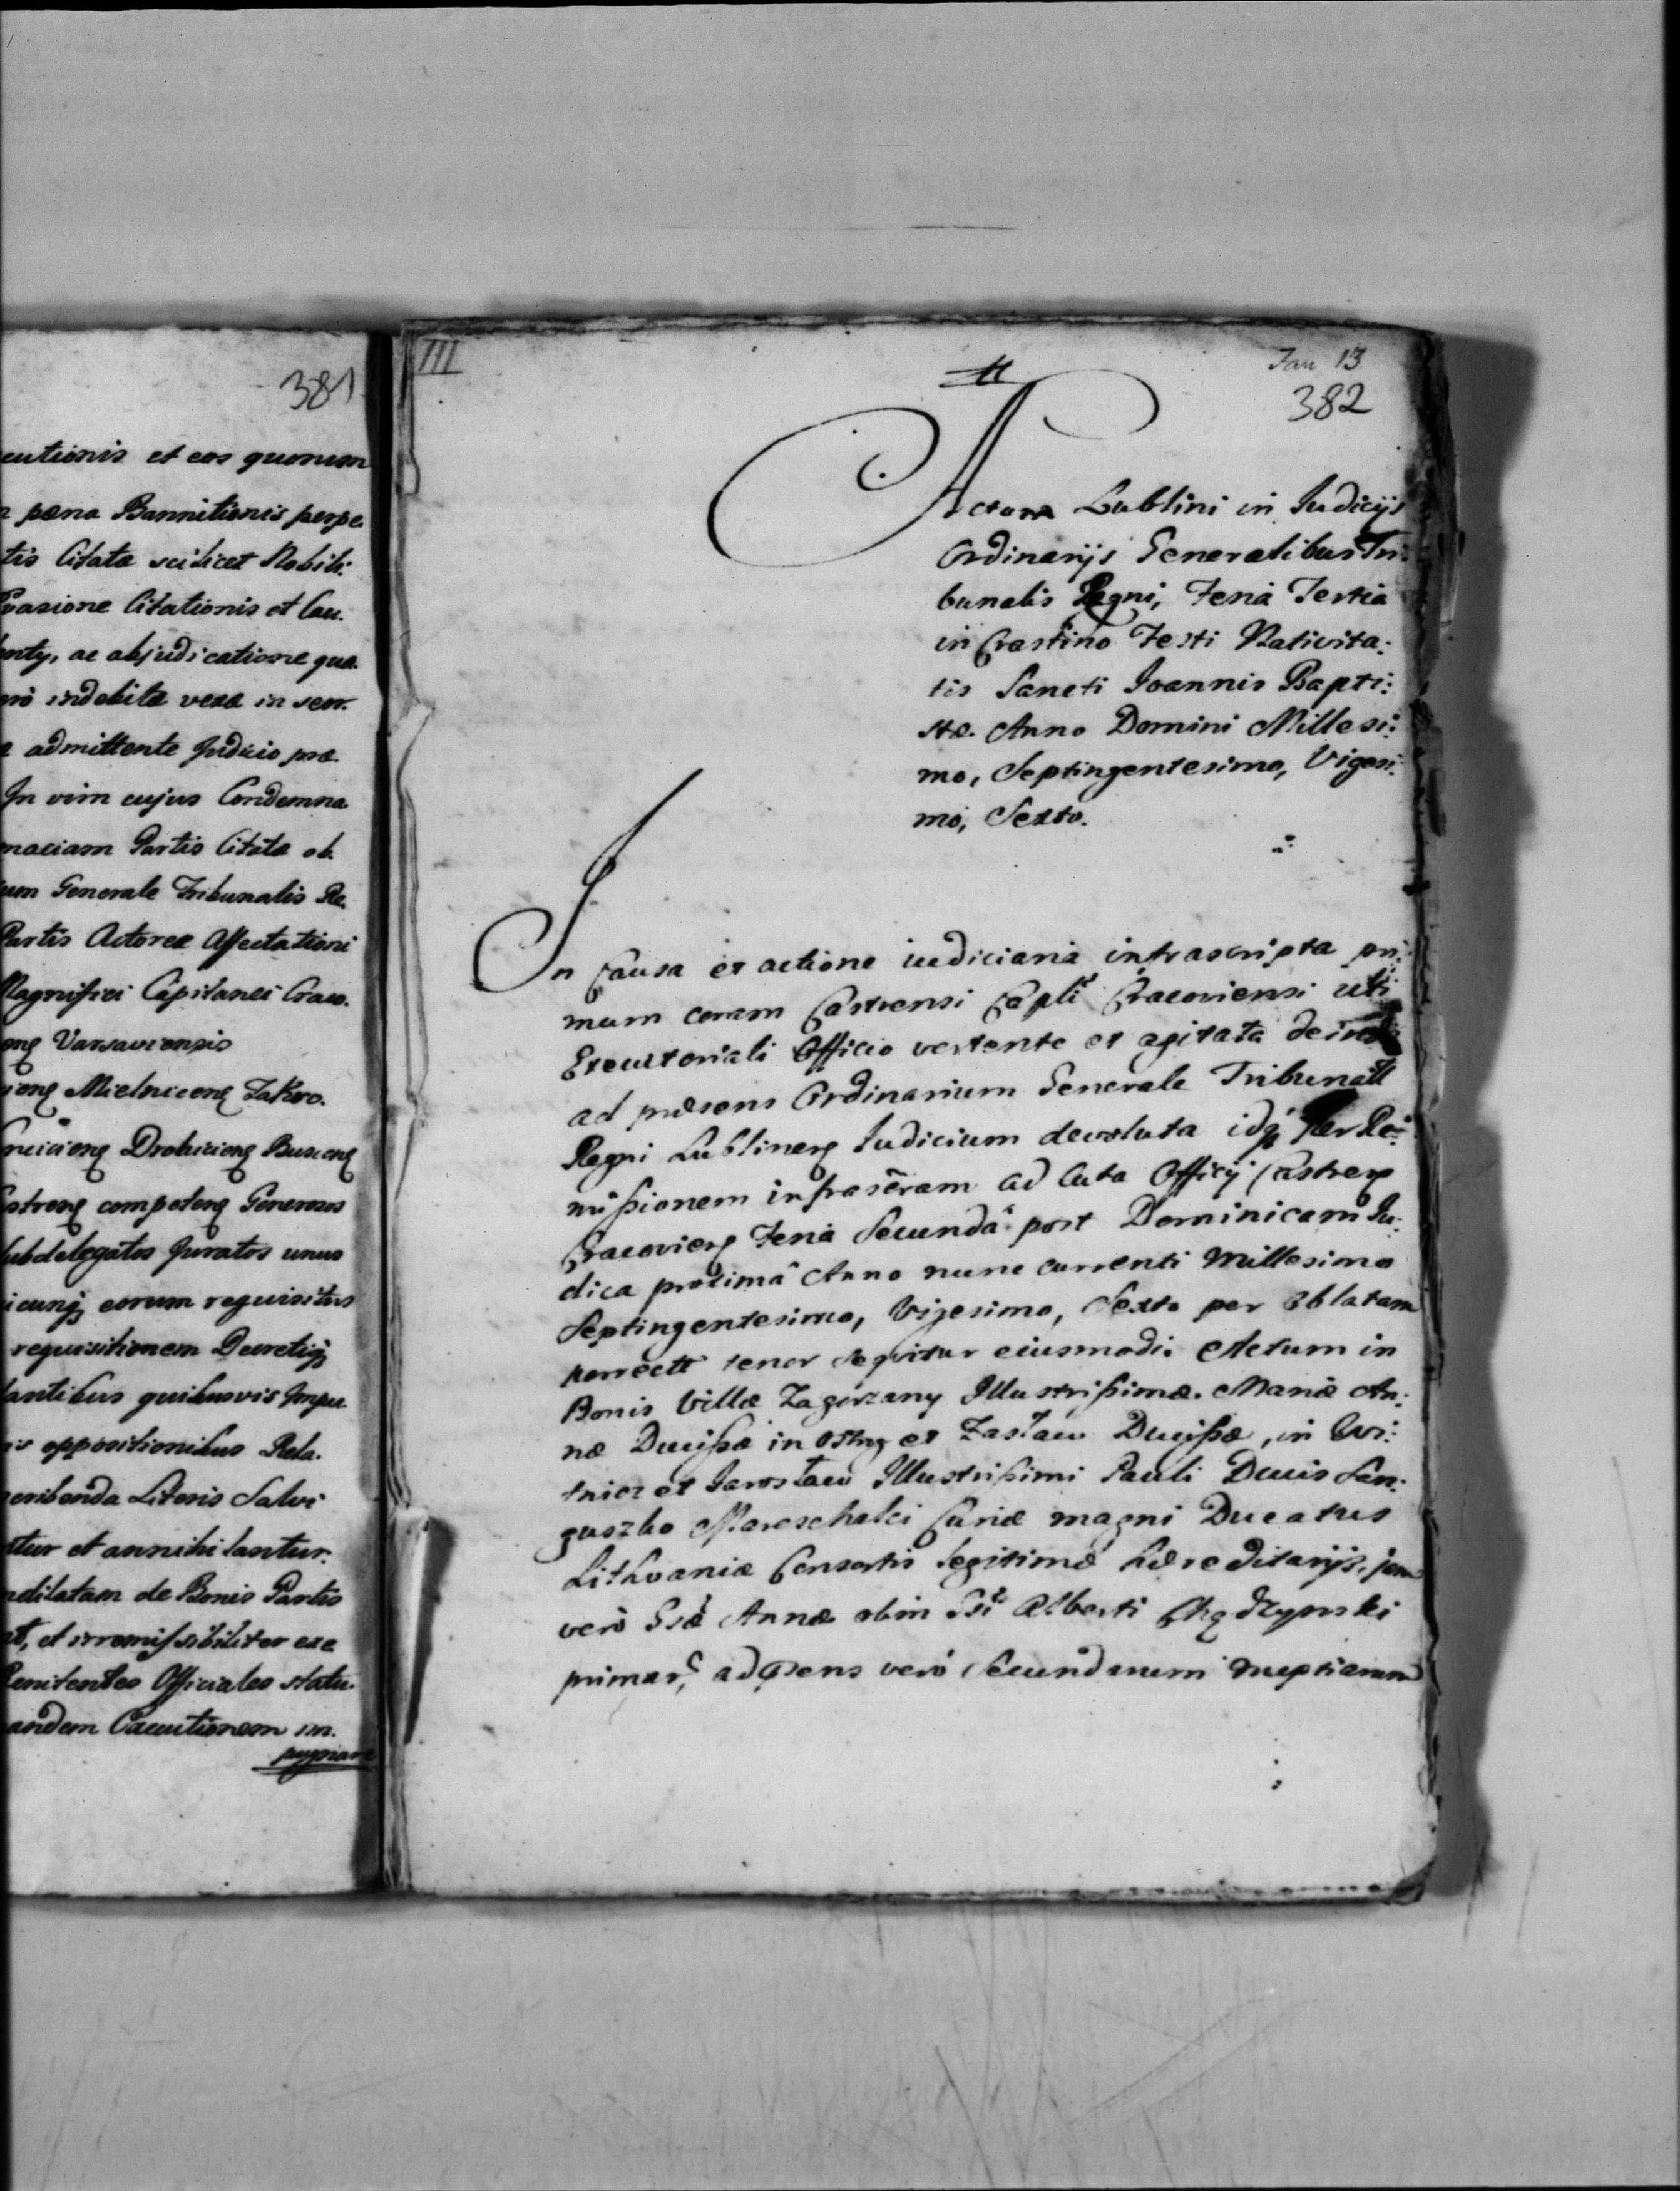 381
cutionis et eos quorum
pæna Bannitionis perpe.
tis Citatæ scilicet Nobili.
Evasione Citationis et Cau.
ac abjudicatione qua.
indebitæ vexæ in seor.
admittente Judicio præ.
In vim cujus Condemna
maciam Partis Citatæ ob.
um Generale Tribunalis Re.
Partis Actoreæ Affectationi
Magnifici Capitanei Crac.
eng Varsaviensis
Mielniceng Zakro.
Drohiciong Busceng
streng competeng Generosos
Subdelegatos Juratos unus
icunqz eorum requisitus
requisitionem Decretiqz
lantibus quibusvis Impu
oppositionibus Rela.
eribenda Literis Salvi
tur et annihilantur.
ditatam de Bonis Partis
et irremissibiliter exe
Renitentes Officiales statu.
andem Executionem im.
pugnare
III
Jan 13
382
Actum Lublini in Iudicijs
Ordinarijs Generalibus Tri:
bunalis Regni, Feria Tertia
in Crastino Festi Nativita:
tis Sancti Ioannis Bapti:
stæ. Anno Domini Millesi:
mo, Septingentesimo, Vigesi:
mo, Sexto.
In Causa et actione iudiciaria infrascripta pri:
mum coram Castrensi Capli Cracoviensi uti
Executoriali Officio vertente et agitata deinde
ad præsens Ordinarium Generale Tribunatt
Regni Lublineng Iudicium devoluta idqz Per Re:
mißionem infrascram ad Acta Officij Castreng
Cracovieng Feria Secundâ post Dominicam Iu:
dica proximâ Anno nunc currenti Millesimo
Septingentesimo, Vigesimo, Sexto per Oblatam
porrectt tenor sequitur eiusmodi. Actum in
Bonis Villæ Zagorzany Illustrißimæ. Mariæ An:
næ Ducißæ in Ostrog et Zasław Ducißæ, in
et Iarosław Illustrißimi Pauli Ducis San:
guszko Mareschalci Curiæ magni Ducatus
Lithvaniæ Consortis legitimæ hæreditarijs, jam
verò Gsæ Annæ olim Gsi Alberti Chądzynski
primar, ad psens verò Secundarum nuptiarum